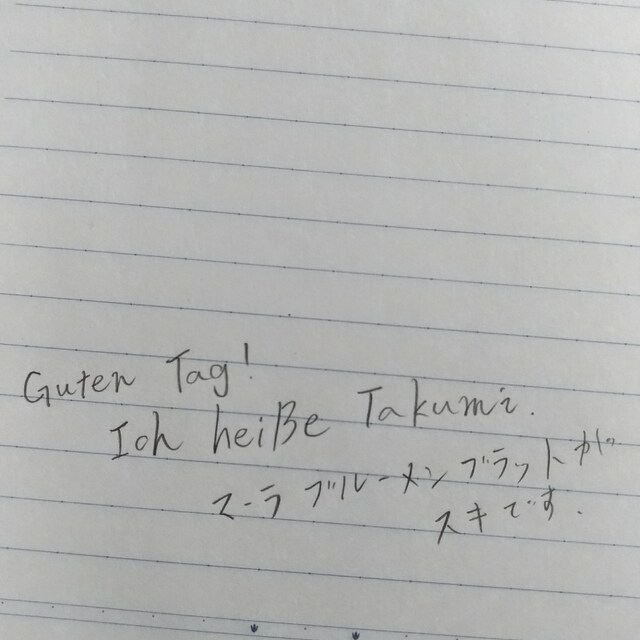 Guten Tag!
Ich heiße Takumi.
スーラ ブルーメンブラットが
スキです.